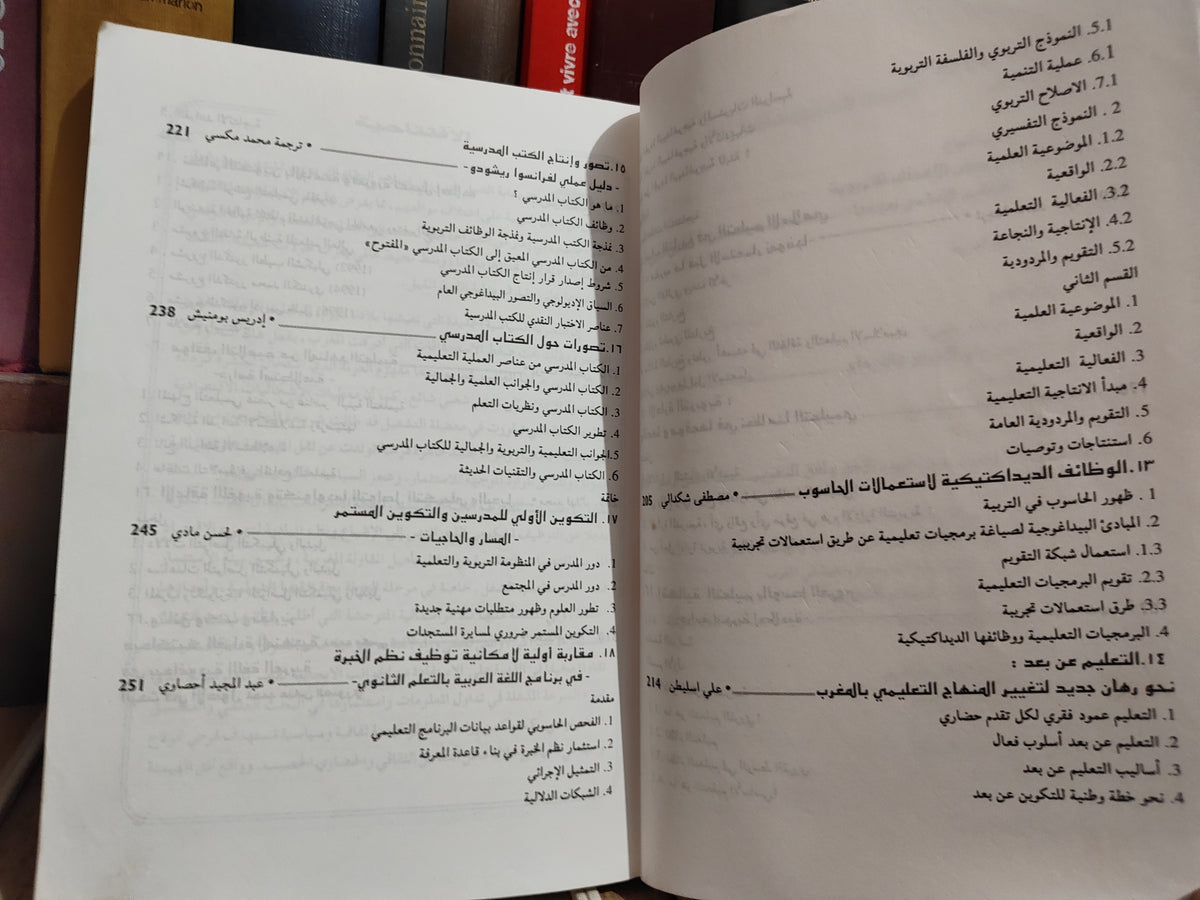 onnain
t vivre avec
5.1. النموذج التربوي والفلسفة التربوية
6.1. عملية التنمية
7.1. الاصلاح التربوي
2 . النموذج التفسيري
1.2. الموضوعية العلمية
2.2. الواقعية
3.2. الفعالية التعلمية
4.2. الإنتاجية والنجاعة
5.2. التقويم والمردودية
القسم الثاني
1. الموضوعية العلمية
2. الواقعية
3. الفعالية التعليمية
4. مبدأ الانتاجية التعليمية
5. التقويم والمردودية العامة
6. استنتاجات وتوصيات
١٣. الوظائف الديداكتيكية لاستعمالات الحاسوب ــــــــ • مصطفى شكدالي 205
1 . ظهور الحاسوب في التربية
2. المبادئ البيداغوجية لصياغة برمجيات تعليمية عن طريق استعمالات تجريبية
1.3. استعمال شبكة التقويم
2.3. تقويم البرمجيات التعليمية
3.3. طرق استعمالات تجريبة
4. البرمجيات التعليمية ووظائفها الديداكتيكية
١٤. التعليم عن بعد :
نحو رهان جديد لتغيير المنهاج التعليمي بالمغرب ــــــــ • علي اسليطن 214
1. التعليم عمود فقري لكل تقدم حضاري
2. التعليم عن بعد أسلوب فعال
3. أساليب التعليم عن بعد
4. نحو خطة وطنية للتكوين عن بعد
١٥. تصور وإنتاج الكتب المدرسية
- دليل عملي لفرانسوا ريشودو- ــــــــ • ترجمة محمد مكسي 221
1. ما هو الكتاب المدرسي ؟
2. وظائف الكتاب المدرسي
3. نمذجة الكتب المدرسية ونمذجة الوظائف التربوية
4. من الكتاب المدرسي المعيق إلى الكتاب المدرسي «المفتوح»
5. شروط إصدار قرار إنتاج الكتاب المدرسي
6. السياق الإديولوجي والتصور البيداغوجي العام
7. عناصر الاختبار النقدي للكتب المدرسية
١٦. تصورات حول الكتاب المدرسي ــــــــ • إدريس بومنيش 238
1. الكتاب المدرسي من عناصر العملية التعليمية
2. الكتاب المدرسي والجوانب العلمية والجمالية
3. الكتاب المدرسي ونظريات التعلم
4. تطوير الكتاب المدرسي
5. الجوانب التعليمية والتربوية والجمالية للكتاب المدرسي
6. الكتاب المدرسي والتقنيات الحديثة
خاتمة
١٧. التكوين الأولي للمدرسين والتكوين المستمر
- المسار والحاجيات - ــــــــ • لحسن مادي 245
1. دور المدرس في المنظومة التربوية والتعلمية
2. دور المدرس في المجتمع
3. تطور العلوم وظهور متطلبات مهنية جديدة
4. التكوين المستمر ضروري لمسايرة المستجدات
١٨. مقاربة أولية لامكانية توظيف نظم الخبرة
- في برنامج اللغة العربية بالتعلم الثانوي- ــــــــ • عبد المجيد أحصاري 251
مقدمة
1. الفحص الحاسوبي لقواعد بيانات البرنامج التعليمي
2. استثمار نظم الخبرة في بناء قاعدة المعرفة
3. التمثيل الإجرائي
4. الشبكات الدلالية